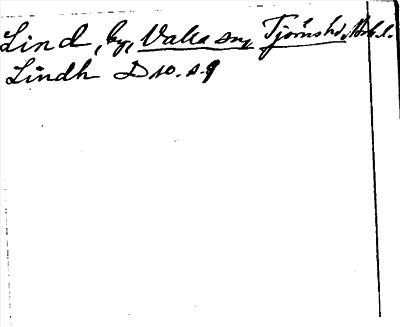 Lind, by, Valla sn, Tjörns hd, Boh.l.
Lindh D 10. s. 9